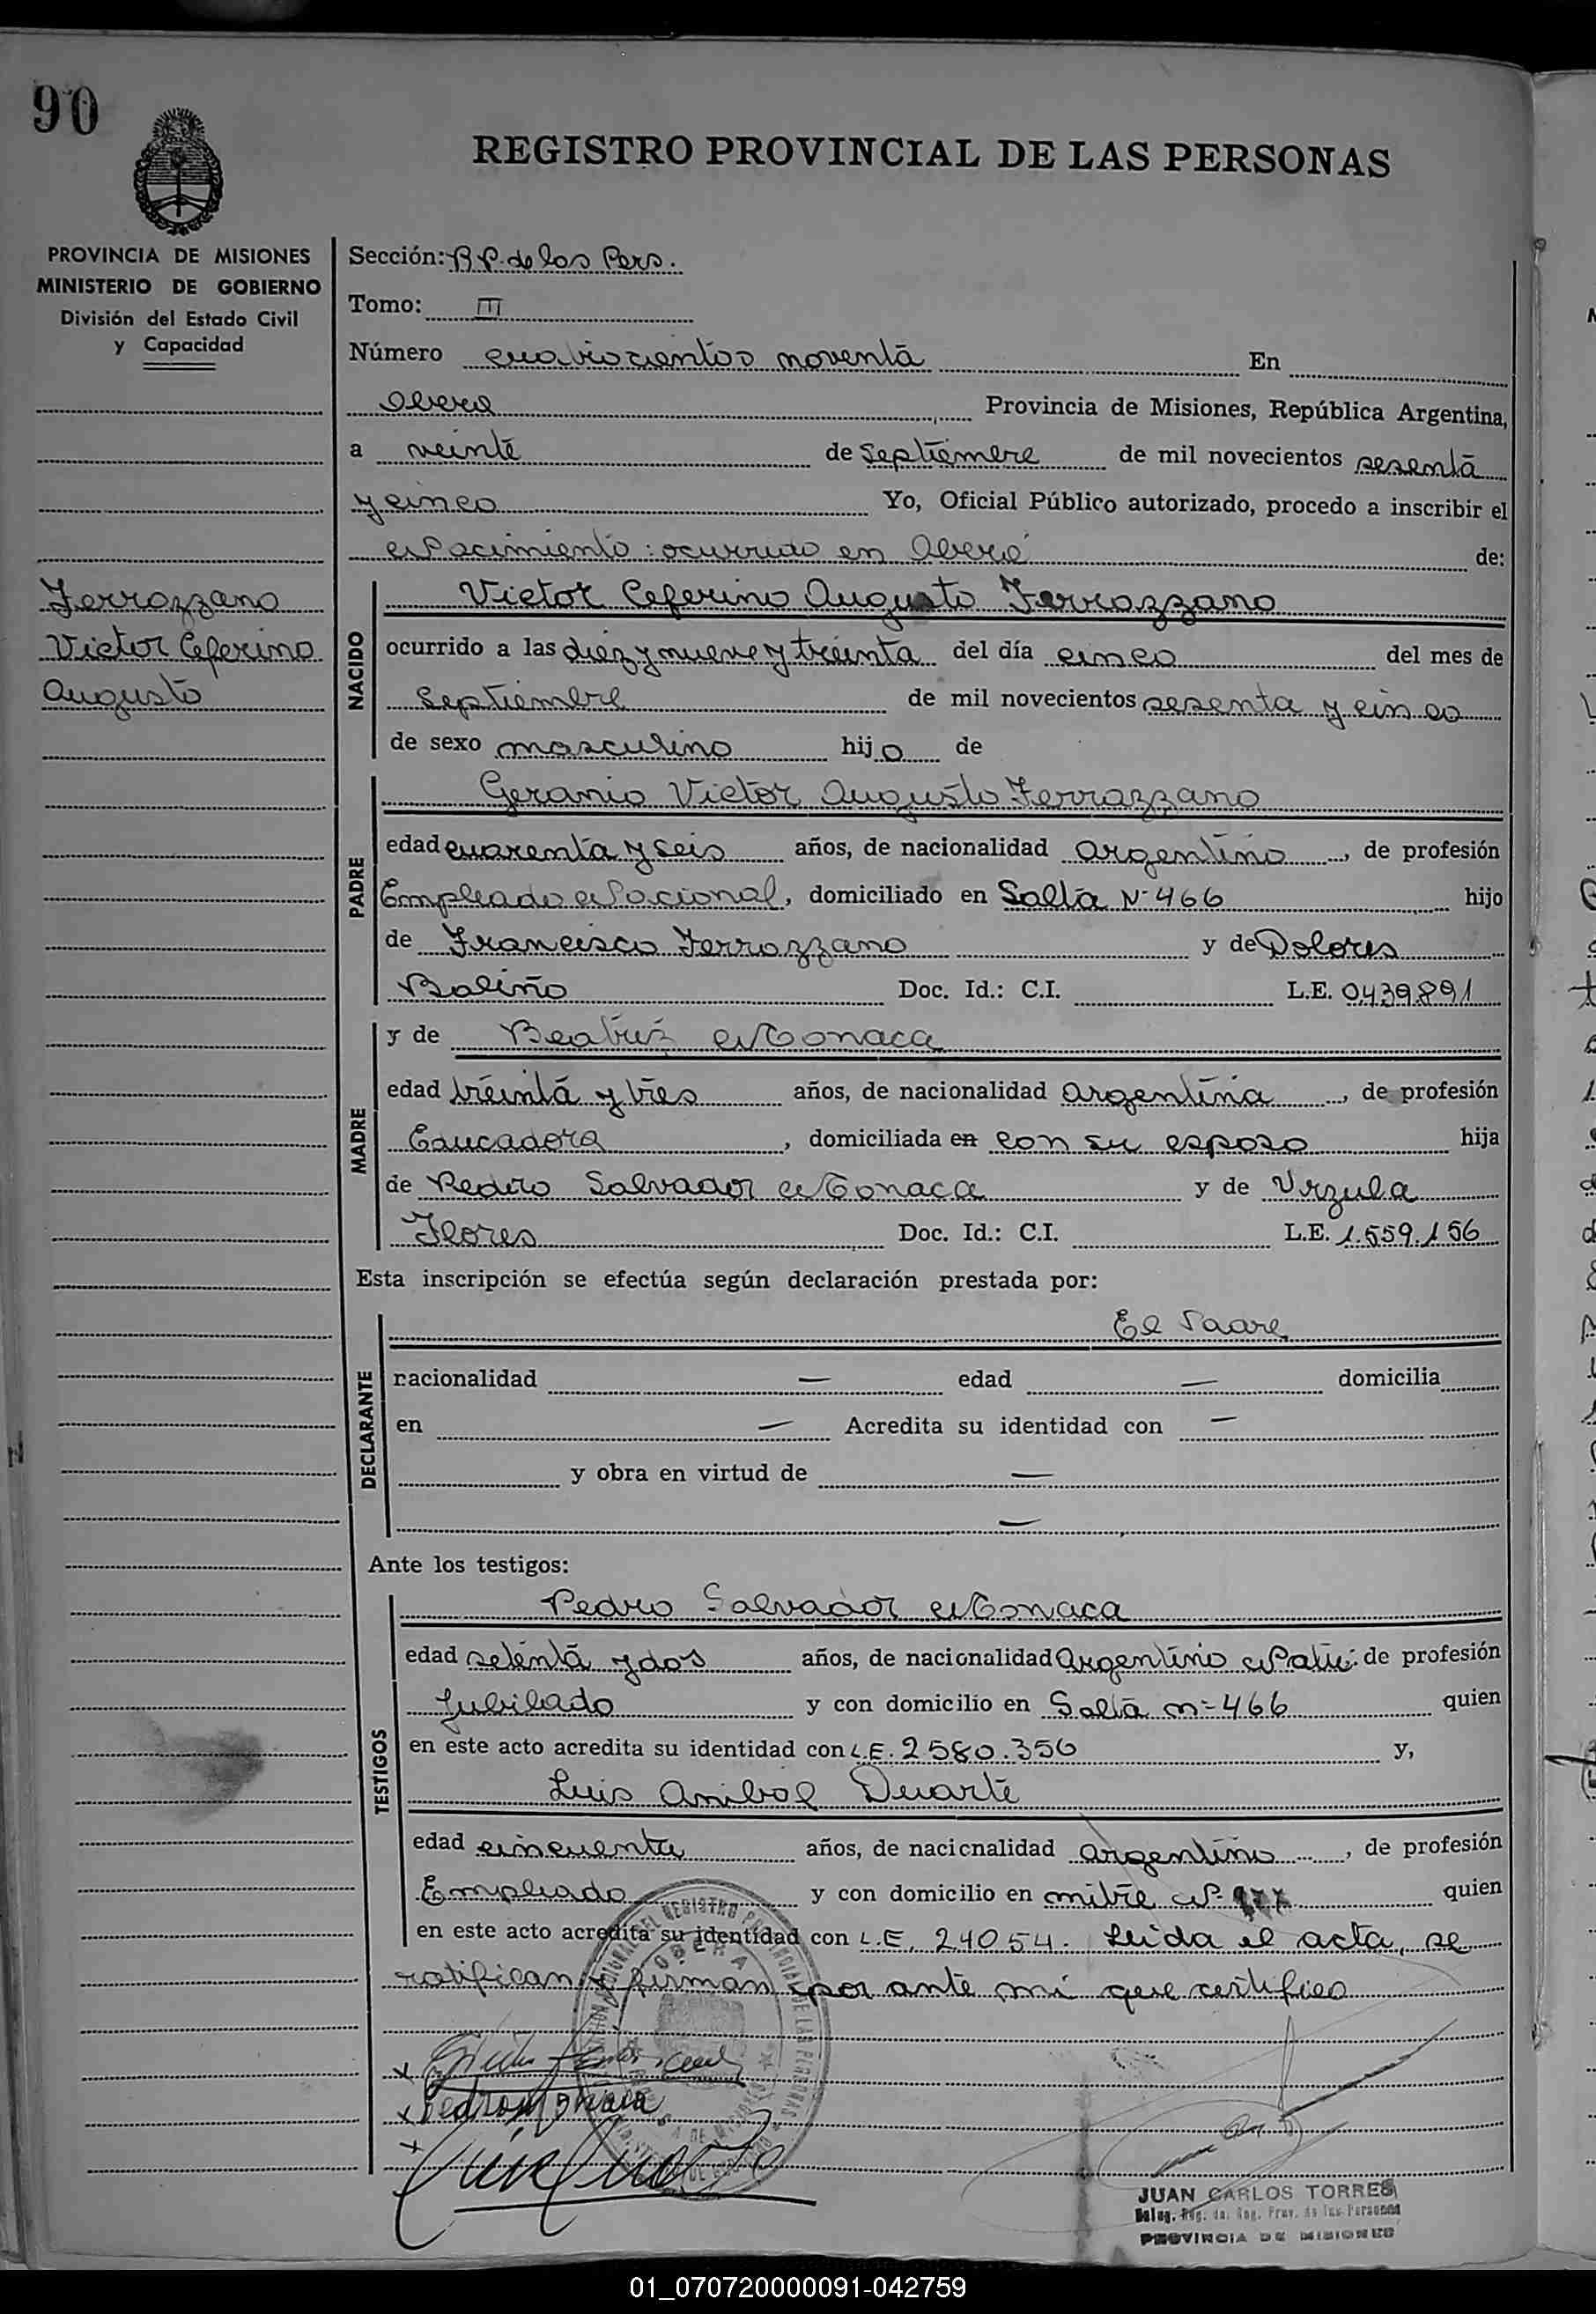 90
REGISTRO PROVINCIAL DE LAS PERSONAS
PROVINCIA DE MISIONES
MINISTERIO DE GOBIERNO
División del Estado Civil
y Capacidad
Sección: R P. de las Pers.
Tomo: III
Número cuatrocientos noventa En
Oberá Provincia de Misiones, República Argentina,
a veinte de Septiembre de mil novecientos sesenta
y cinco Yo, Oficial Público autorizado, procedo a inscribir el
Nacimiento: ocurrido en Oberá de:
Ferrazzano
Victor Ceferino
Augusto
NACIDO
Victor Ceferino Augusto Ferrazzano
ocurrido a las diez y nueve y treinta del día cinco del mes de
Septiembre de mil novecientos sesenta y cinco
de sexo masculino hijo de
PADRE
Geranio Victor Augusto Ferrazzano
edad cuarenta y seis años, de nacionalidad argentino, de profesión
Empleado Nacional, domiciliado en Salta N- 466 hijo
de Francisco Ferrazzano y de Dolores
Baliño Doc. Id.: C.I. L.E. 0439.891
MADRE
y de Beatriz Monaca
edad treinta y tres años, de nacionalidad argentina, de profesión
Educadora, domiciliada en con su esposo hija
de Pedro Salvador Monaca y de Urzula
Flores Doc. Id.: C.I. L.E. 1.559.156
Esta inscripción se efectúa según declaración prestada por:
DECLARANTE
El Padre
nacionalidad — edad — domicilia
en — Acredita su identidad con —
y obra en virtud de —
—
Ante los testigos:
TESTIGOS
Pedro Salvador Monaca
edad setenta y dos años, de nacionalidad Argentino Nati. de profesión
Jubilado y con domicilio en Salta n- 466 quien
en este acto acredita su identidad con L.E. 2580.356 y,
Luis Anibal Duarte
edad cincuenta años, de nacionalidad argentino, de profesión
Empleado y con domicilio en mitre N- quien
en este acto acredita su identidad con L.E. 24054. Leida el acta, se
ratifican y firman por ante mi que certifico
OBERA
Pedro Monaca
JUAN CARLOS TORRES
Deleg. Reg. de. Reg. Prov. de las Personas
PROVINCIA DE MISIONES
01_070720000091-042759